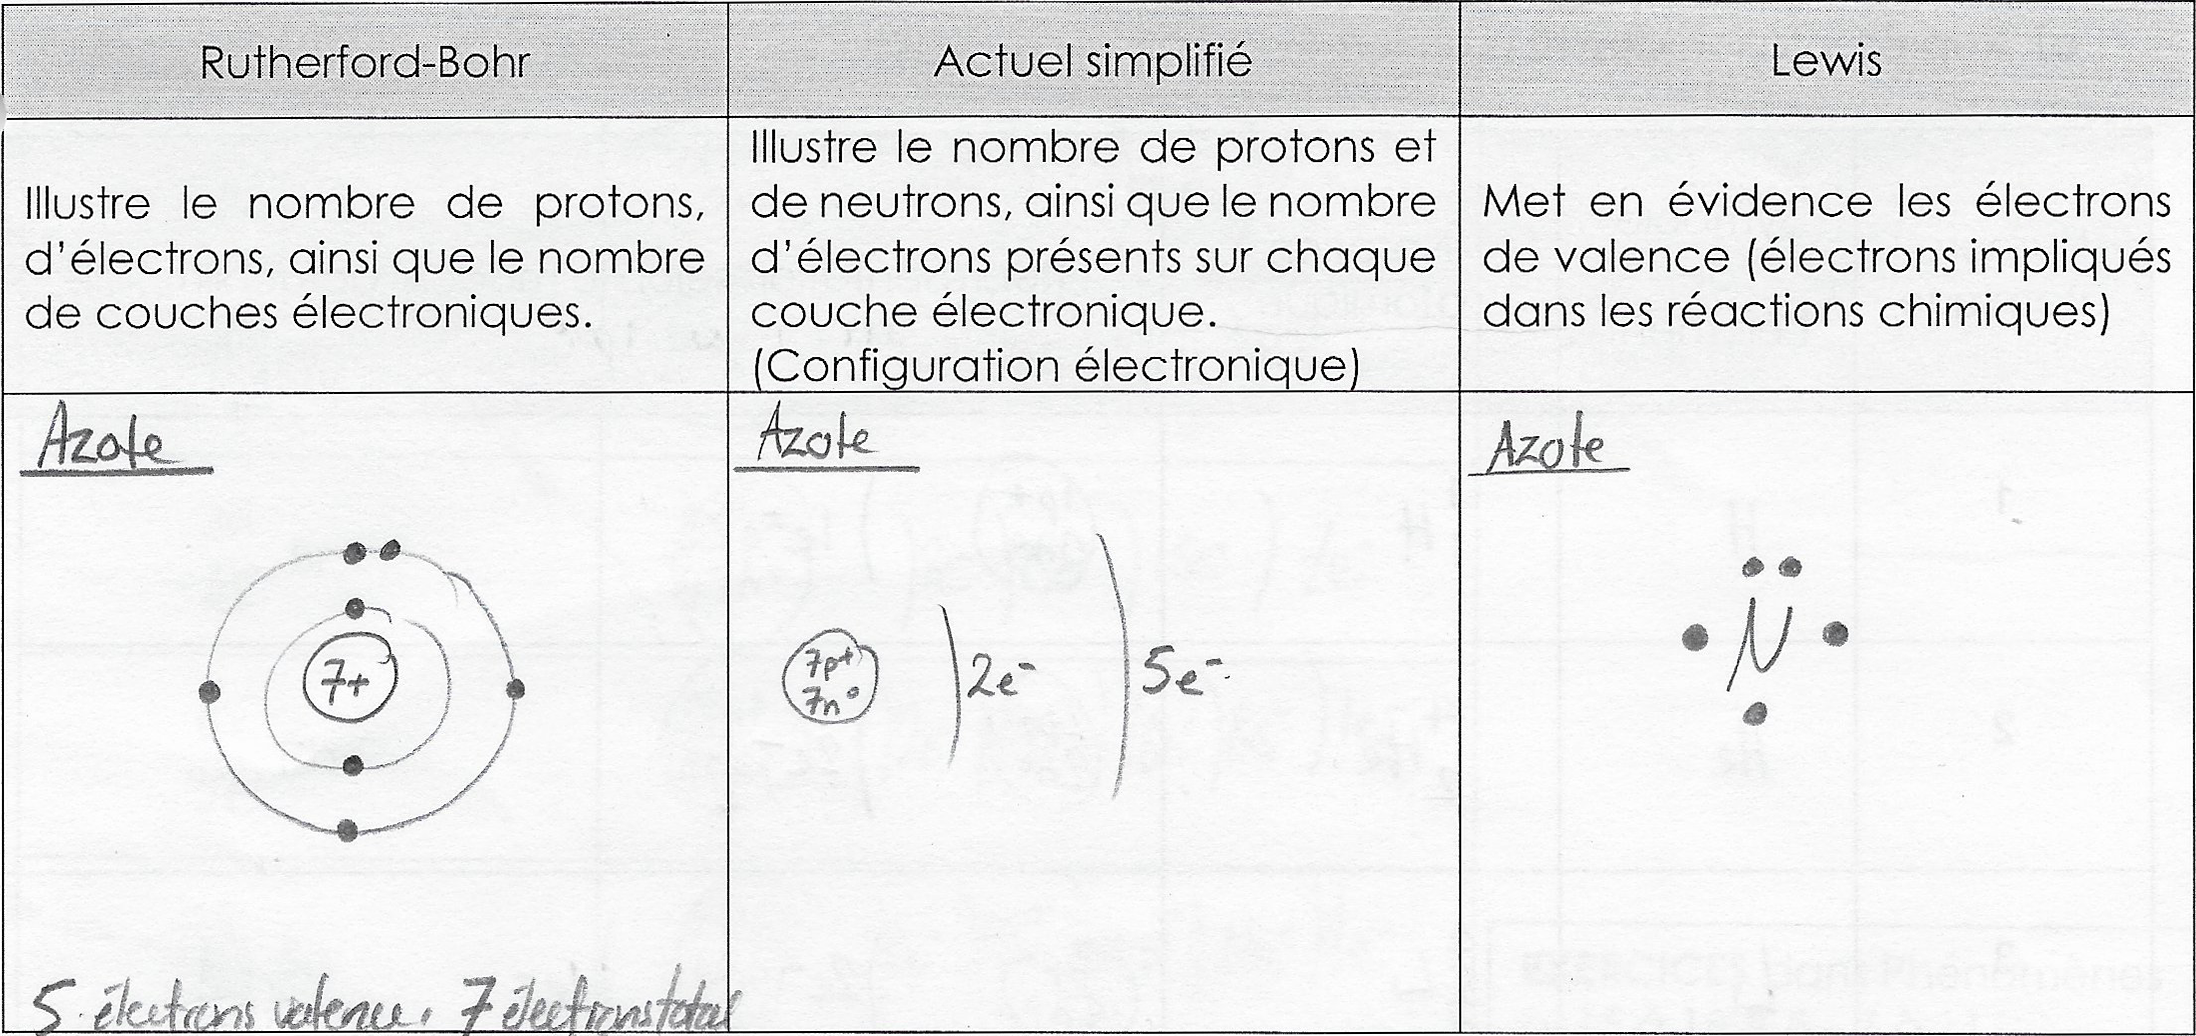 Rutherford-Bohr
Actuel simplifié
Lewis
Illustre le nombre de protons,
d'électrons, ainsi que le nombre
de couches électroniques.
Illustre le nombre de protons et
de neutrons, ainsi que le nombre
d'électrons présents sur chaque
couche électronique.
(Configuration électronique)
Met en évidence les électrons
de valence (électrons impliqués
dans les réactions chimiques)
Azote
7+
5 électrons valence, 7 électrons total
Azote
7p+
7n°
2e-
5e-
Azote
N